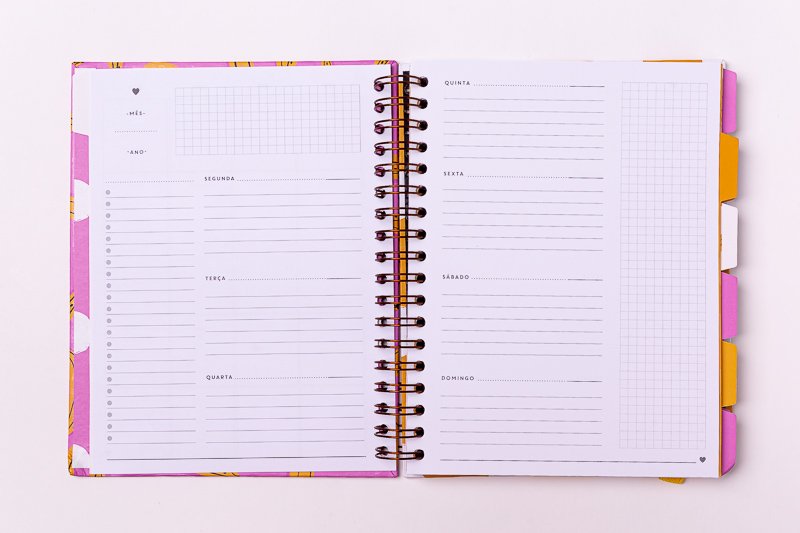 -MÊS-
-ANO-
SEGUNDA
TERÇA
QUARTA
QUINTA
SEXTA
SÁBADO
DOMINGO